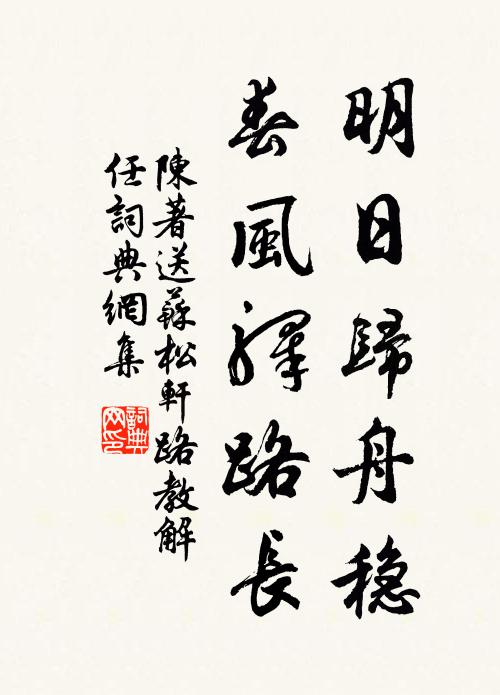 明日歸舟穩
春風驛路長
陳著送蘇松軒路教解
任詞典網集
詞典
网印